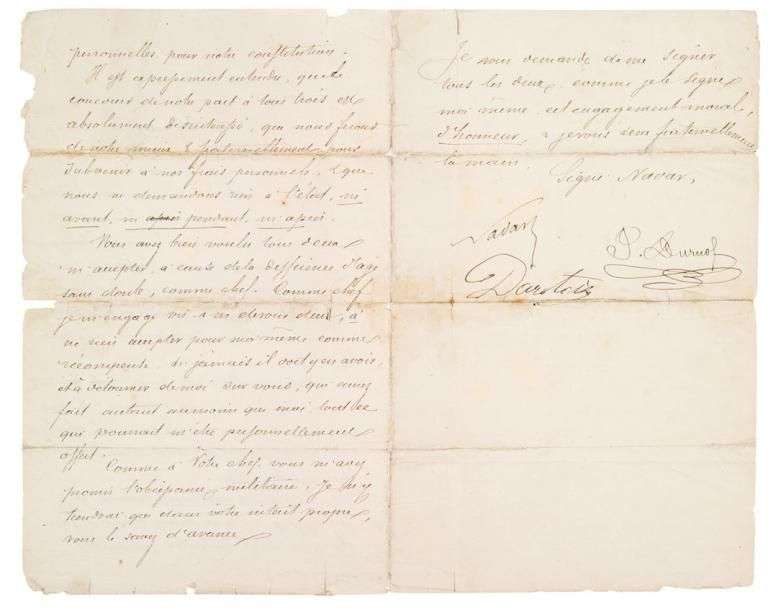 personnelles, pour notre constitution.
Il est expressement entendu, que le
concours de notre part à tous trois est
absolument désintéressé, que nous ferons
de notre mieux & fraternellement pour
subvenir à nos frais personnels, & que
nous ne demandons rien à l'état, ni
avant, ni après pendant, ni après.
Vous avez bien voulu tous deux
m'accepter, à cause de la différence d'age
sans doute, comme chef. Comme chef
je m'engage vis à vis de vous deux, à
ne rien accepter pour moi même comme
récompense, si jamais il doit y en avoir,
et à détourner de moi sur vous, qui aurez
fait autant au moins que moi, tout ce
qui pourrait m'être personnellement
offert.
Comme à votre chef, vous m'avez
promis l'obéissance militaire. Je n'y
tiendrai que dans votre intérêt propre,
vous le savez d'avance
Je vous demande de me signer
tous les deux, comme je le signe
moi même cet engagement moral,
d'Honneur, & je vous serre fraternellement
la main.
Signé Nadar,
Nadar
J. Duruof
Dartois